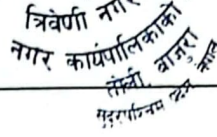 त्रिवेणी नगर
नगर कार्यपालिकाको
तोली, बाजुरा
सुदूरपश्चिम प्रदेश नेपाल